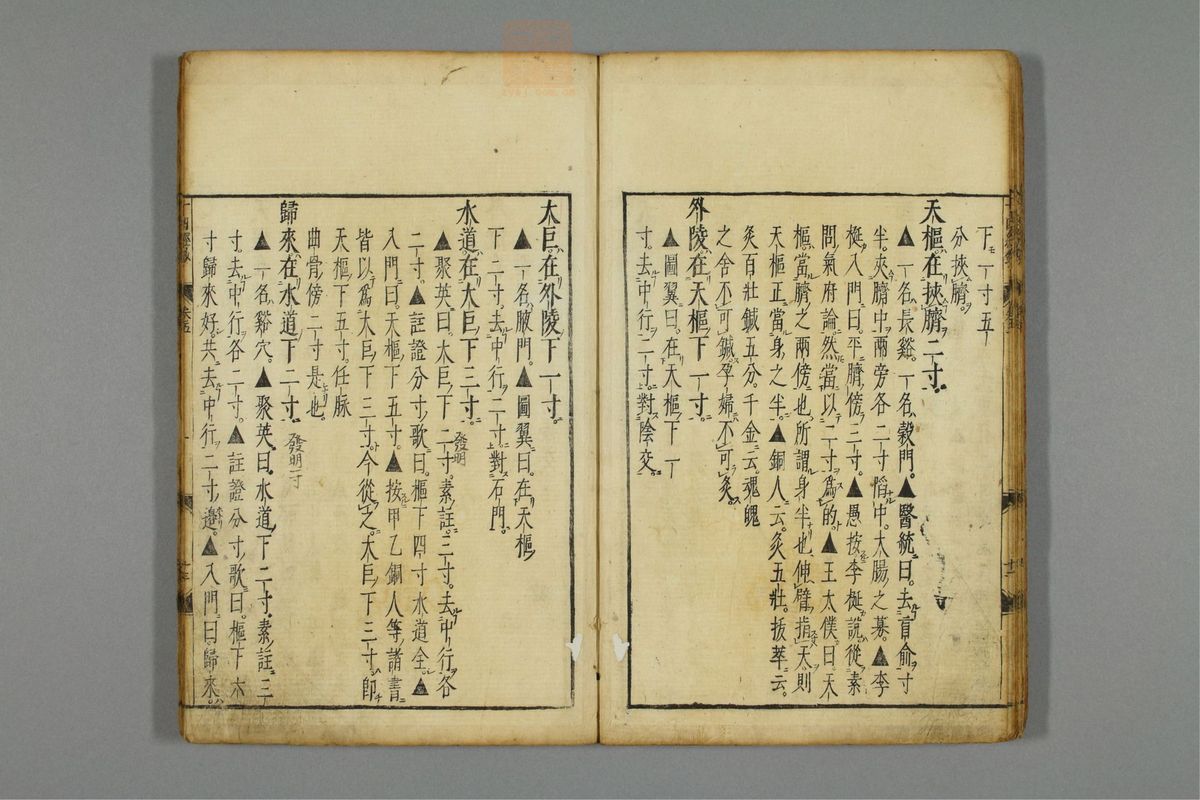 下一寸五
分挾臍。
天樞在挾臍二寸。
▲一名長谿。一名穀門。▲醫統曰。去肓俞寸
半。夾臍中兩旁各二寸陷中。大腸之募。▲李
梴入門曰。平臍傍三寸。▲愚按。李梴說從素
問氣府論。然當以二寸爲的。▲王太僕曰。天
樞當臍之兩傍也。所謂身半也。伸臂指天。則
天樞正當身之半。▲銅人云。灸五壯。拔萃云。
灸百壯鍼五分。千金云。魂魄
之舍不可鍼。孕婦不可灸。
外陵在天樞下一寸。
▲圖翼曰。在天樞下一
寸。去中行二寸。對陰交。
大巨在外陵下一寸。
▲一名腋門。▲圖翼曰。在天樞
下二寸。去中行二寸。對石門。
水道在大巨下三寸。發明
▲聚英曰。大巨下二寸。素註。三寸。去中行各
二寸。▲註證分寸歌曰。樞下四寸水道全。▲
入門曰。天樞下五寸。▲按甲乙銅人等諸書
皆以爲大巨下三寸。今從之。大巨下三寸。即
天樞下五寸。任脉
曲骨傍二寸是也。
歸來在水道下二寸。發明一寸
▲一名谿穴。▲聚英曰。水道下二寸。素註。三
寸。去中行各二寸。▲註證分寸歌曰。樞下六
寸歸來好。共去中行二寸邊。▲入門曰。歸來。